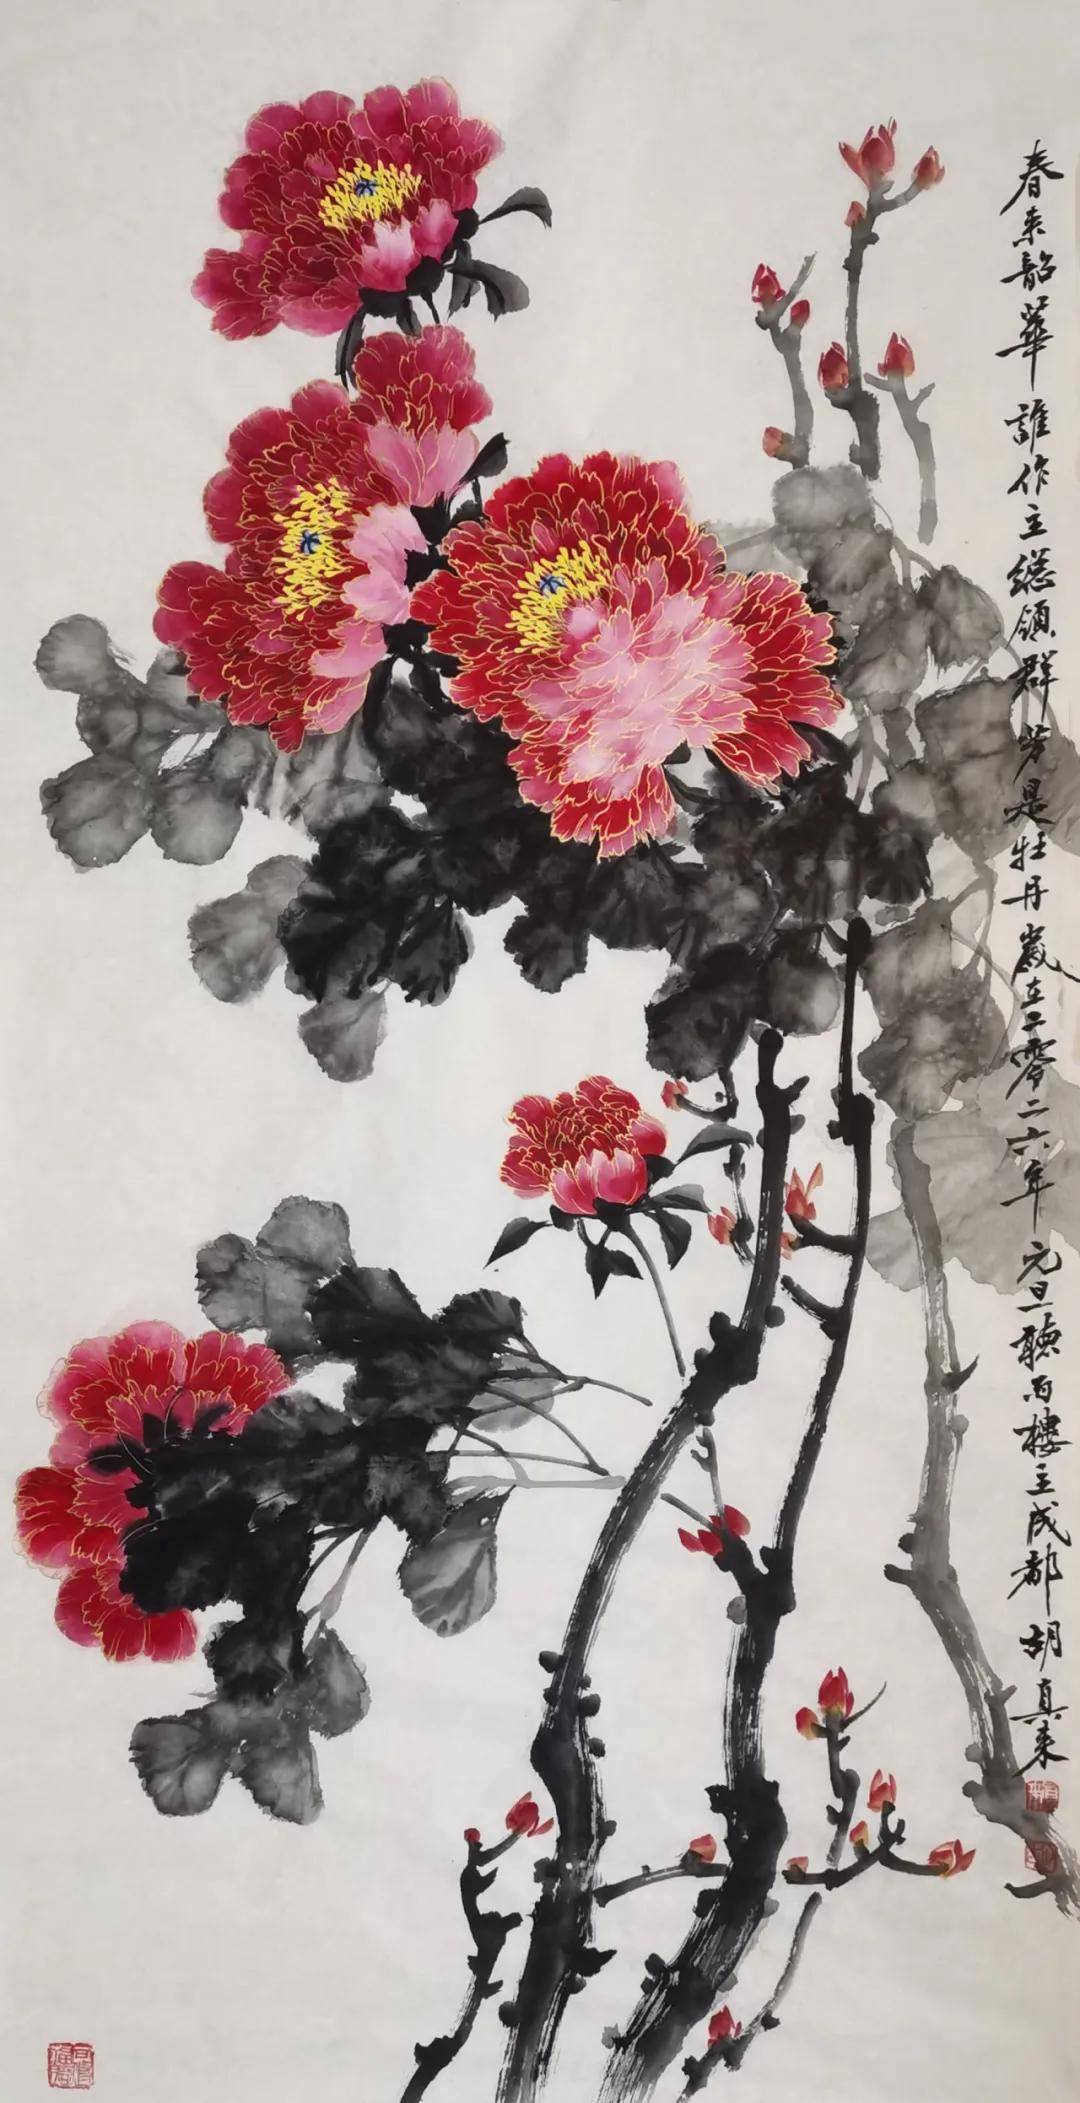 春来韶華誰作主總領群芳是牡丹歲在二零二六年元旦聴雨樓主成都胡真来